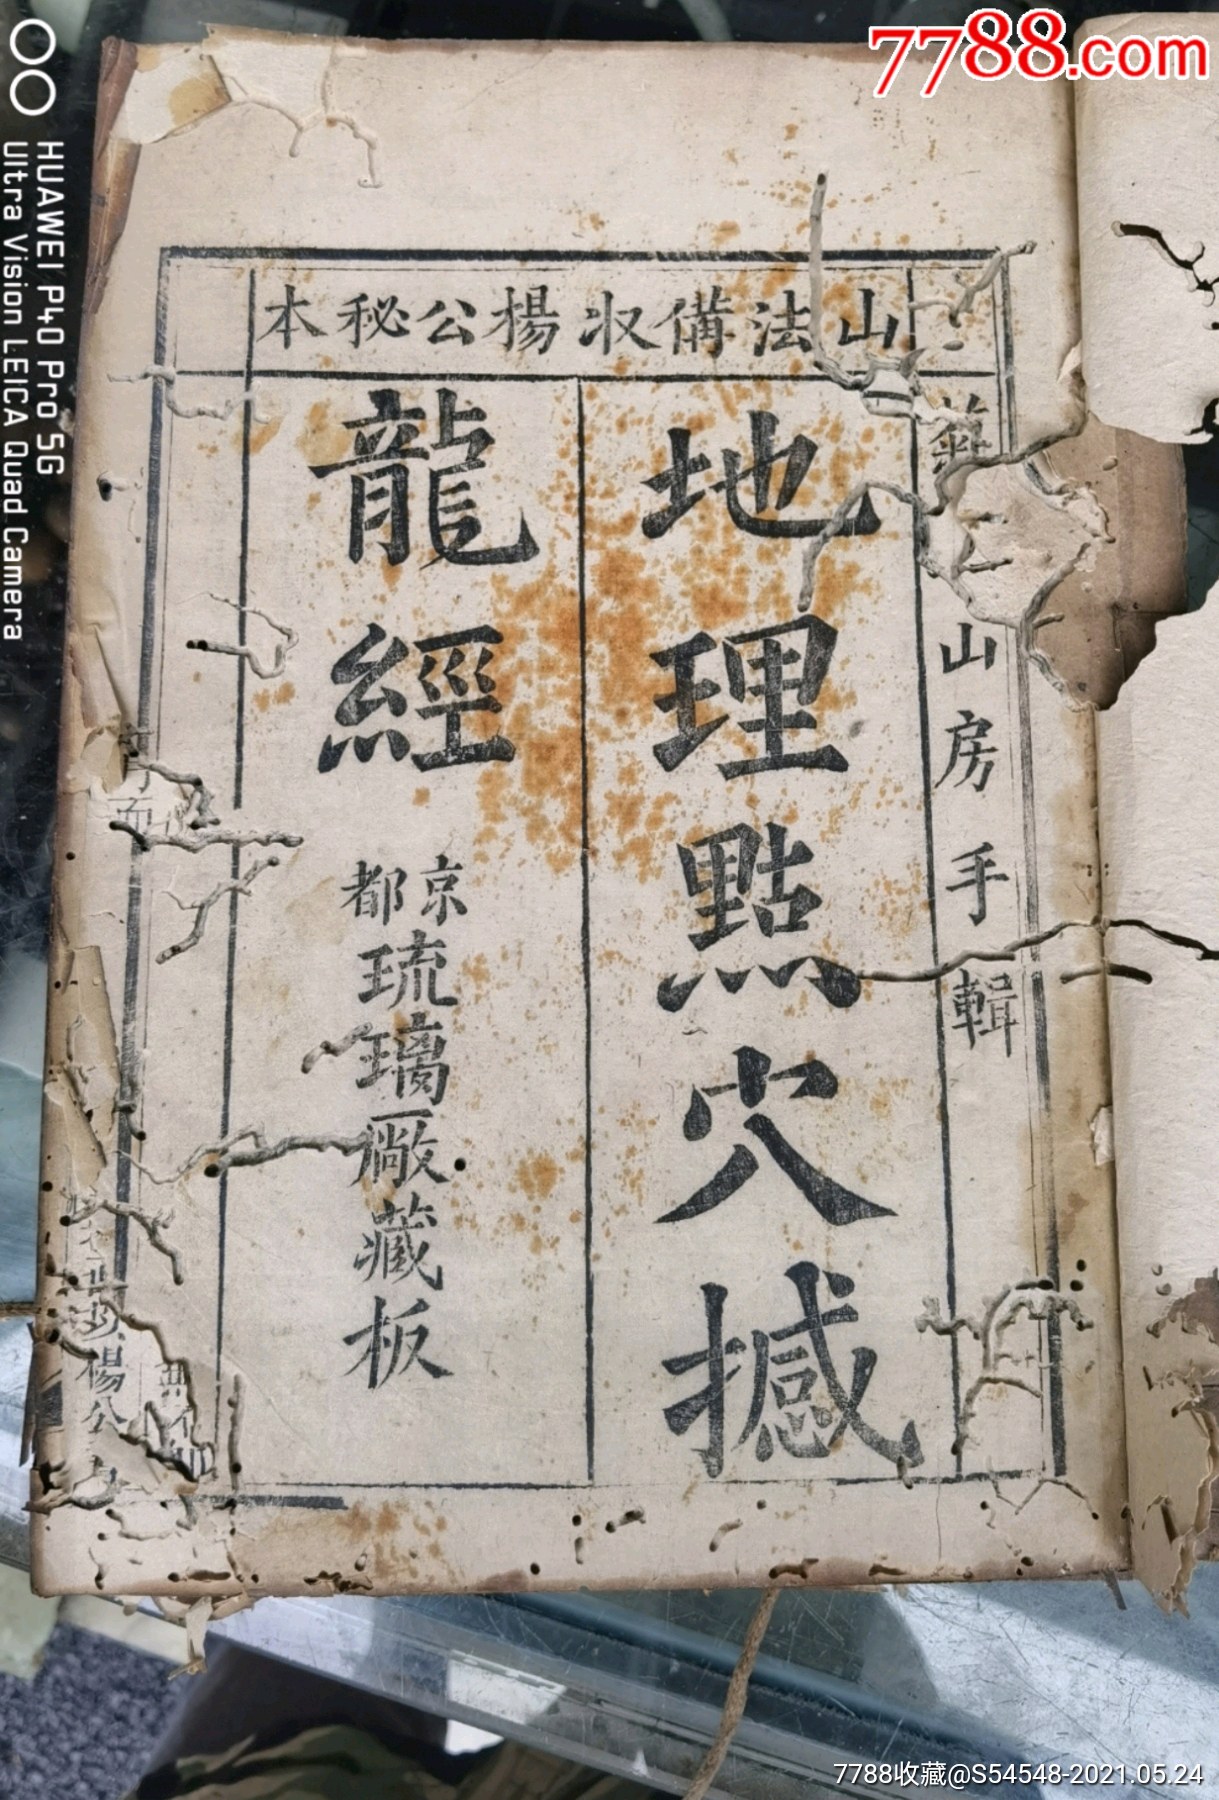 7788.com
HUAWEI P40 Pro 5G
Ultra Vision LEICA Quad Camera
山法備収楊公秘本
山房手輯
地理點穴撼
龍經
京都
琉璃厰藏板
楊公
7788收藏@S54548-2021.05.24